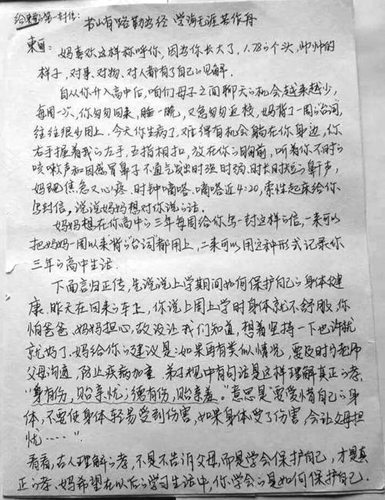 给东西第一封信: 书山有路勤为径 学海无涯苦作舟
妈喜欢这样称呼你,因为你长大了,1.78的个头,帅帅的
样子,对事、对物、对人都有了自己的见解。
自从你升入高中后,咱们母子之间聊天的机会越来越少,
每周一次,你匆匆回来,睡一晚,又急匆匆返校,妈背了一周的台词,
往往很少用上。今天你生病了,难得有机会躺在你身边,你
右手握着我的左手,五指相扣,放在你的胸前,听着你不时的
咳嗽声和因感冒鼻子不通气发出时强时弱、时长时短的鼾声,
妈既焦急又心疼。时钟嘀嗒、嘀嗒近4:20,索性起床给你
写封信,说说妈妈想对你说的话。
妈妈想在你高中的三年每周给你写一封这样的信,一来可以
把妈妈一周以来背的台词都用上,二来可以用这种形式记录你
三年的高中生活。
下面言归正传,先说说上学期间如何保护自己的身体健
康。昨天在回来的车上,你说上周上学时身体就不舒服,你
怕爸爸、妈妈担心,故没让我们知道,想着坚持一下也许就
就好了。妈给你的建议是:如果再有类似情况,要及时与老师
父母沟通,防止疾病加重。弟子规中有句话是这样理解真正的孝,
“身有伤,贻亲忧;德有伤,贻亲羞。”意思是“要爱惜自己的身
体,不要使身体轻易受到伤害,如果身体受了伤害,会让父母担
忧……”
看看,古人理解的孝,不是不告诉父母,而是学会保护自己,才是真
正的孝。妈希望在以后的学习生活中,你学会的是如何保护自己.